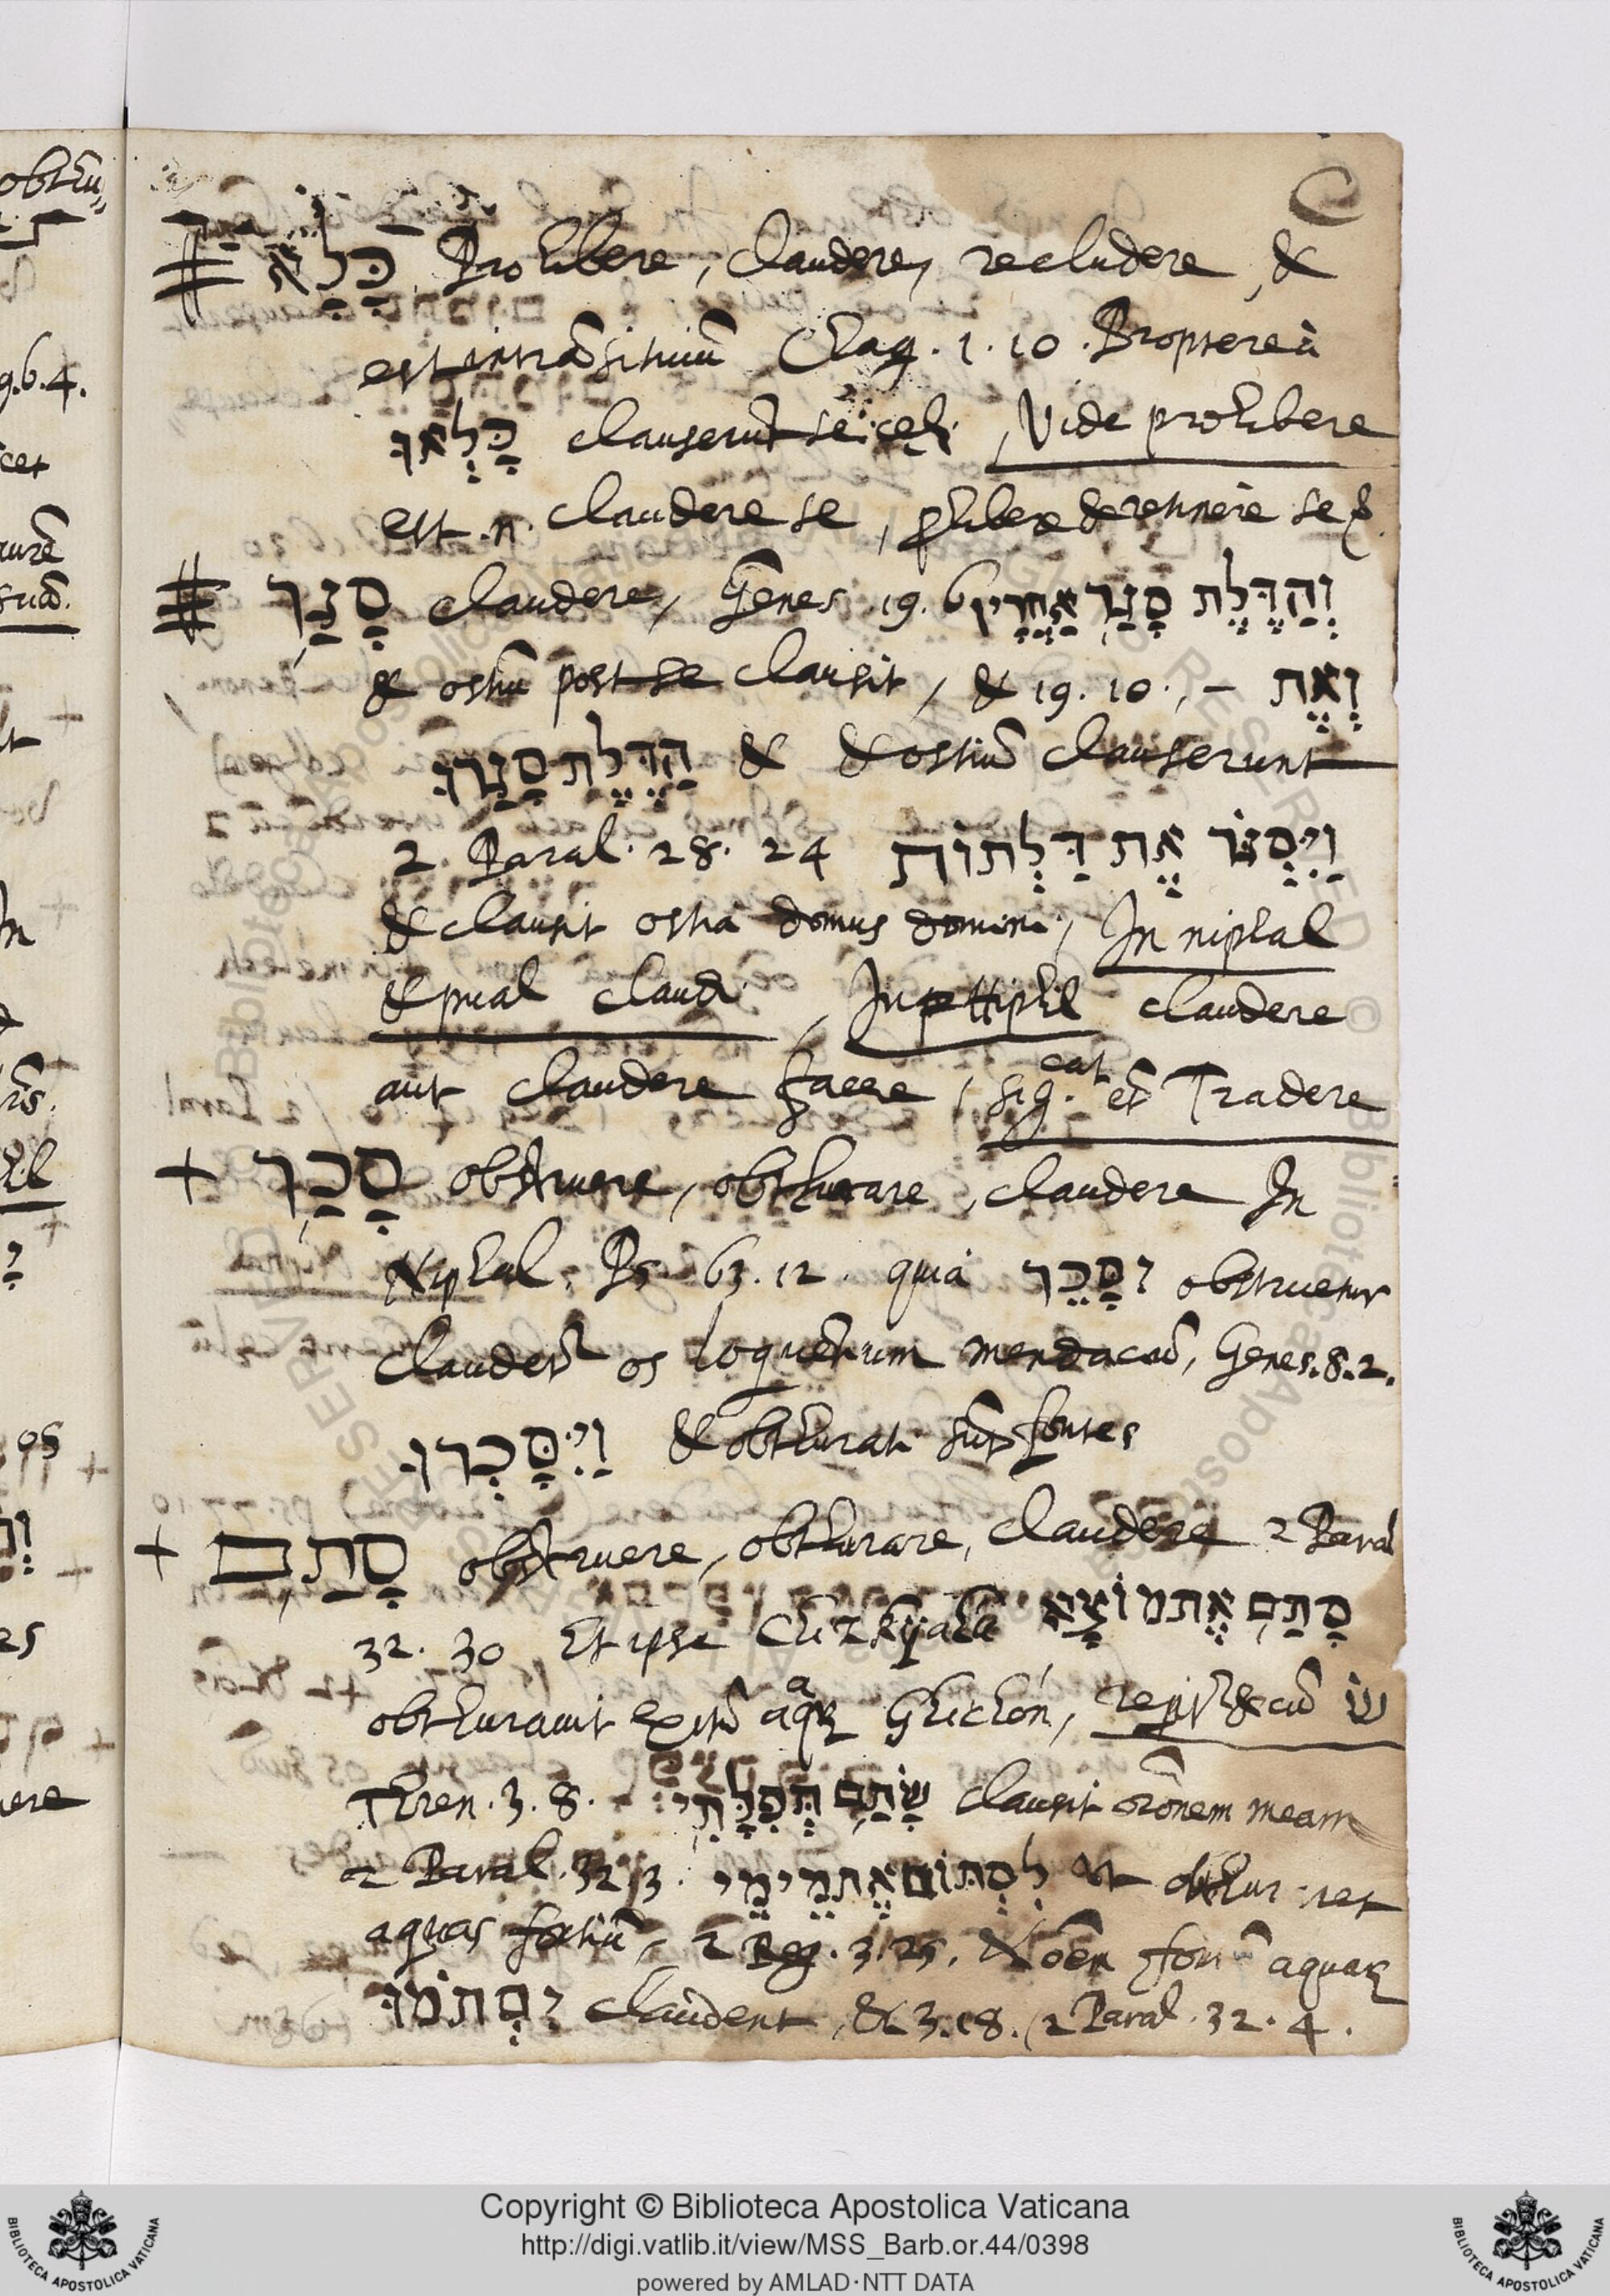 C
כָּלָא Prohibere, claudere, recludere, &
est intrãsitiuũ Chag. 1. 10. Propterea
כָּלְאוּ clauserũt se celi, Vide prohibere
est .n. claudere se, &retinere se
סָגַר claudere, Genes 19. 6 וְהַדֶּלֶת סָגַר אַחֲרָיו
& ostiũ post se clausit, & 19. 10., – וְאֶת
הַדֶּלֶת סָגָרוּ & & ostiũ clauserunt
2. Paral. 28. 24 וַיִּסְגֹּר אֶת דַּלְתוֹת
& clausit ostia domus domini, In niphal
& pual claudi, In hiphil claudere
aut claudere facere, sig.cat et̃ Tradere
+ סָכַר obstruere, obthurare, claudere In
Niphal, Ps 63. 12. quia יִסָּכֵר obstruetur
claudet̃ os loquẽtium mendaciũ, Genes. 8. 2.
וַיִּסָּכְרוּ & obthurati sũt fontes
+ סָתַם obstruere, obthurare, claudere 2 Paral
32. 30 Et ipse Chizkijahu סָתַם אֶת מוֹצָא
obthurauit exitũ aq̃ Ghichon, cũ שׂ
Thren. 3. 8. שָׂתַם תְּפִלָּתִי clausit orõnem meam
2 Paral. 32. 3. לִסְתּוֹם אֶת מֵימֵי vt
aquas fõtiũ, 2 Reg. 3. 25. & oẽm aquar
יִסְתֹּמוּ claudent, & 3. 18. (2 Paral. 32. 4.
Copyright © Biblioteca Apostolica Vaticana
http://digi.vatlib.it/view/MSS_Barb.or.44/0398
powered by AMLAD·NTT DATA
BIBLIOTECA APOSTOLICA VATICANA
BIBLIOTECA APOSTOLICA VATICANA